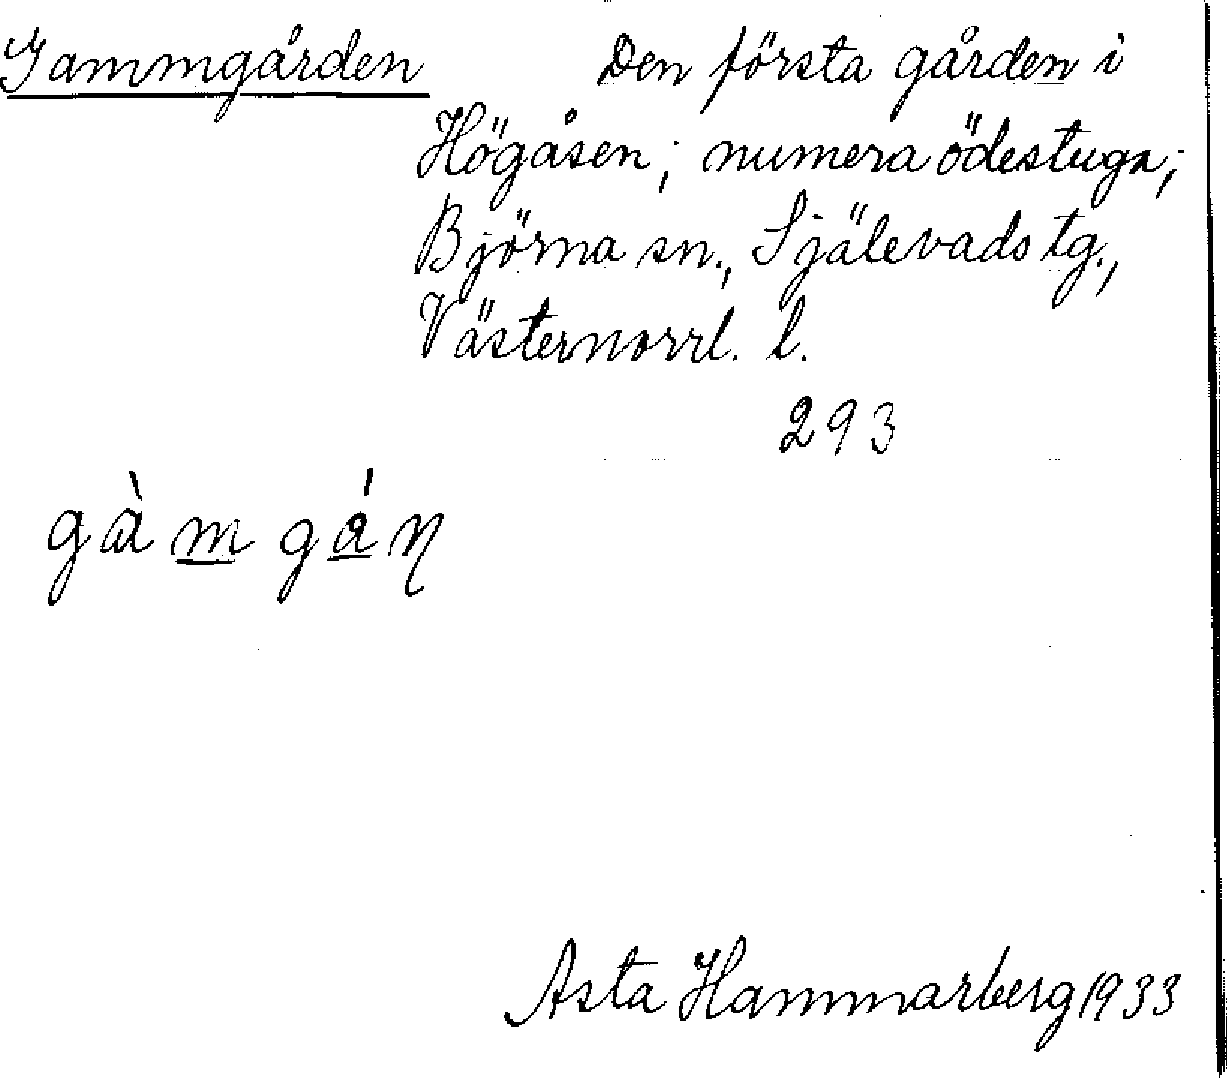 Gammgården
Den första gården i
Högåsen; numera ödestuga;
Björna sn., Själevads tg.,
Västernorrl. l.
293
gàm̲ gá̲ŋ
Asta Hammarberg 1933